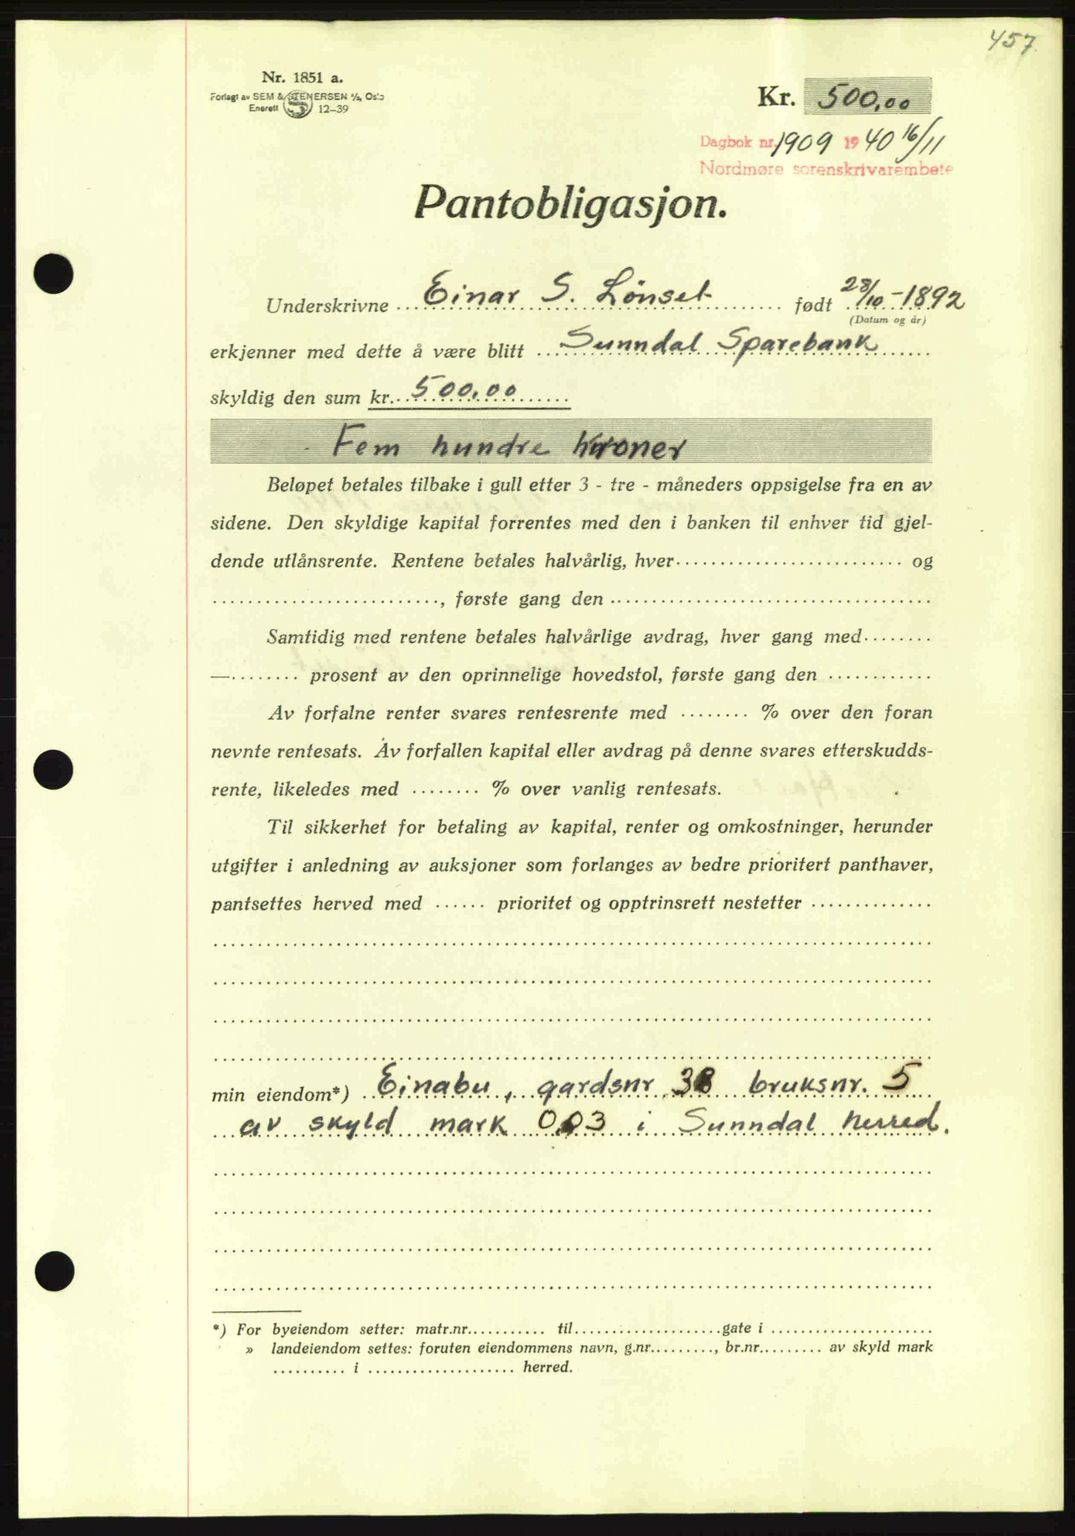 457
Nr. 1851 a.
Forlagt av SEM & STENERSEN A/S, Oslo
Enerett 12-39
Kr. 500,00
Dagbok nr. 1909 1940 16/11
Nordmøre sorenskrivarembete
Pantobligasjon.
Underskrivne Einar S. Lønset født 28/10-1892
(Datum og år)
erkjenner med dette å være blitt Sunndal Sparebank
skyldig den sum kr. 500,00
Fem hundre kroner
Beløpet betales tilbake i gull etter 3 - tre - måneders oppsigelse fra en av
sidene. Den skyldige kapital forrentes med den i banken til enhver tid gjel-
dende utlånsrente. Rentene betales halvårlig, hver .......... og
.........., første gang den ..........
Samtidig med rentene betales halvårlige avdrag, hver gang med ........
—........ prosent av den oprinnelige hovedstol, første gang den ............
Av forfalne renter svares rentesrente med ........ % over den foran
nevnte rentesats. Av forfallen kapital eller avdrag på denne svares etterskudds-
rente, likeledes med ........ % over vanlig rentesats.
Til sikkerhet for betaling av kapital, renter og omkostninger, herunder
utgifter i anledning av auksjoner som forlanges av bedre prioritert panthaver,
pantsettes herved med ...... prioritet og opptrinsrett nestetter ..............
min eiendom*) Einabu, gardsnr. 38 bruksnr. 5
av skyld mark 0,03 i Sunndal herred.
*) For byeiendom setter: matr.nr........... til.....................gate i .......................
» landeiendom settes: foruten eiendommens navn, g.nr........., br.nr......... av skyld mark
.......... i ..................... herred.